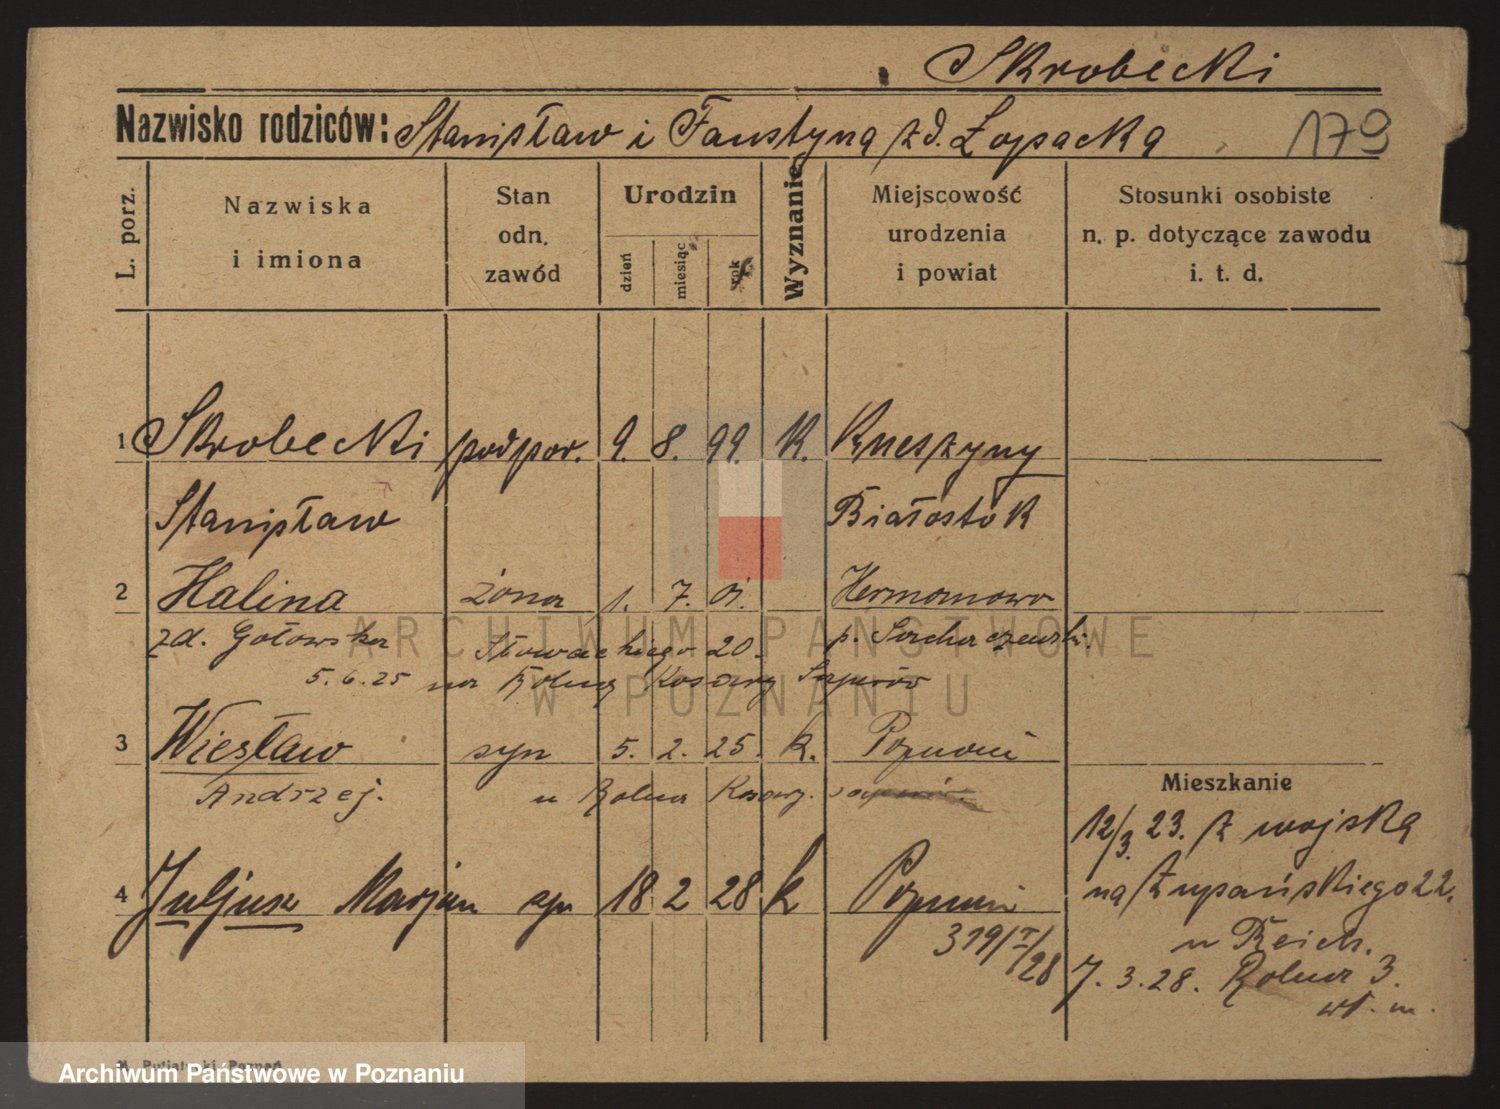 Skrobecki
Nazwisko rodziców: Stanisław i Faustyna zd. Łopacka
179
L. porz.
Nazwiska
i imiona
Stan
odn.
zawód
Urodzin
dzień
miesiąc
rok
Wyznanie
Miejscowość
urodzenia
i powiat
Stosunki osobiste
n. p. dotyczące zawodu
i. t. d.
1 Skrobecki podpor. 9. 8. 99. K. Kneszyny
Stanisław Białostok
2 Halina żona 1. 7. 01. Hermanowo
zd. Gołowska Słowackiego 20. p. Sochaczewski.
5.6.25 na Rolną Kosary Saperów
3 Wiesław syn 5. 2. 25. k. Poznań
Andrzej. u Rolna Kosary.
Mieszkanie
12/3. 23. z wojska
na Żupańskiego 22.
4 Juljusz Marjan syn 18 2 28 k Poznań
u Reich.
319/I/28
7. 3. 28. Rolna 3.
wł. m.
Poznań
ARCHIWUM PAŃSTWOWE
W POZNANIU
Archiwum Państwowe w Poznaniu